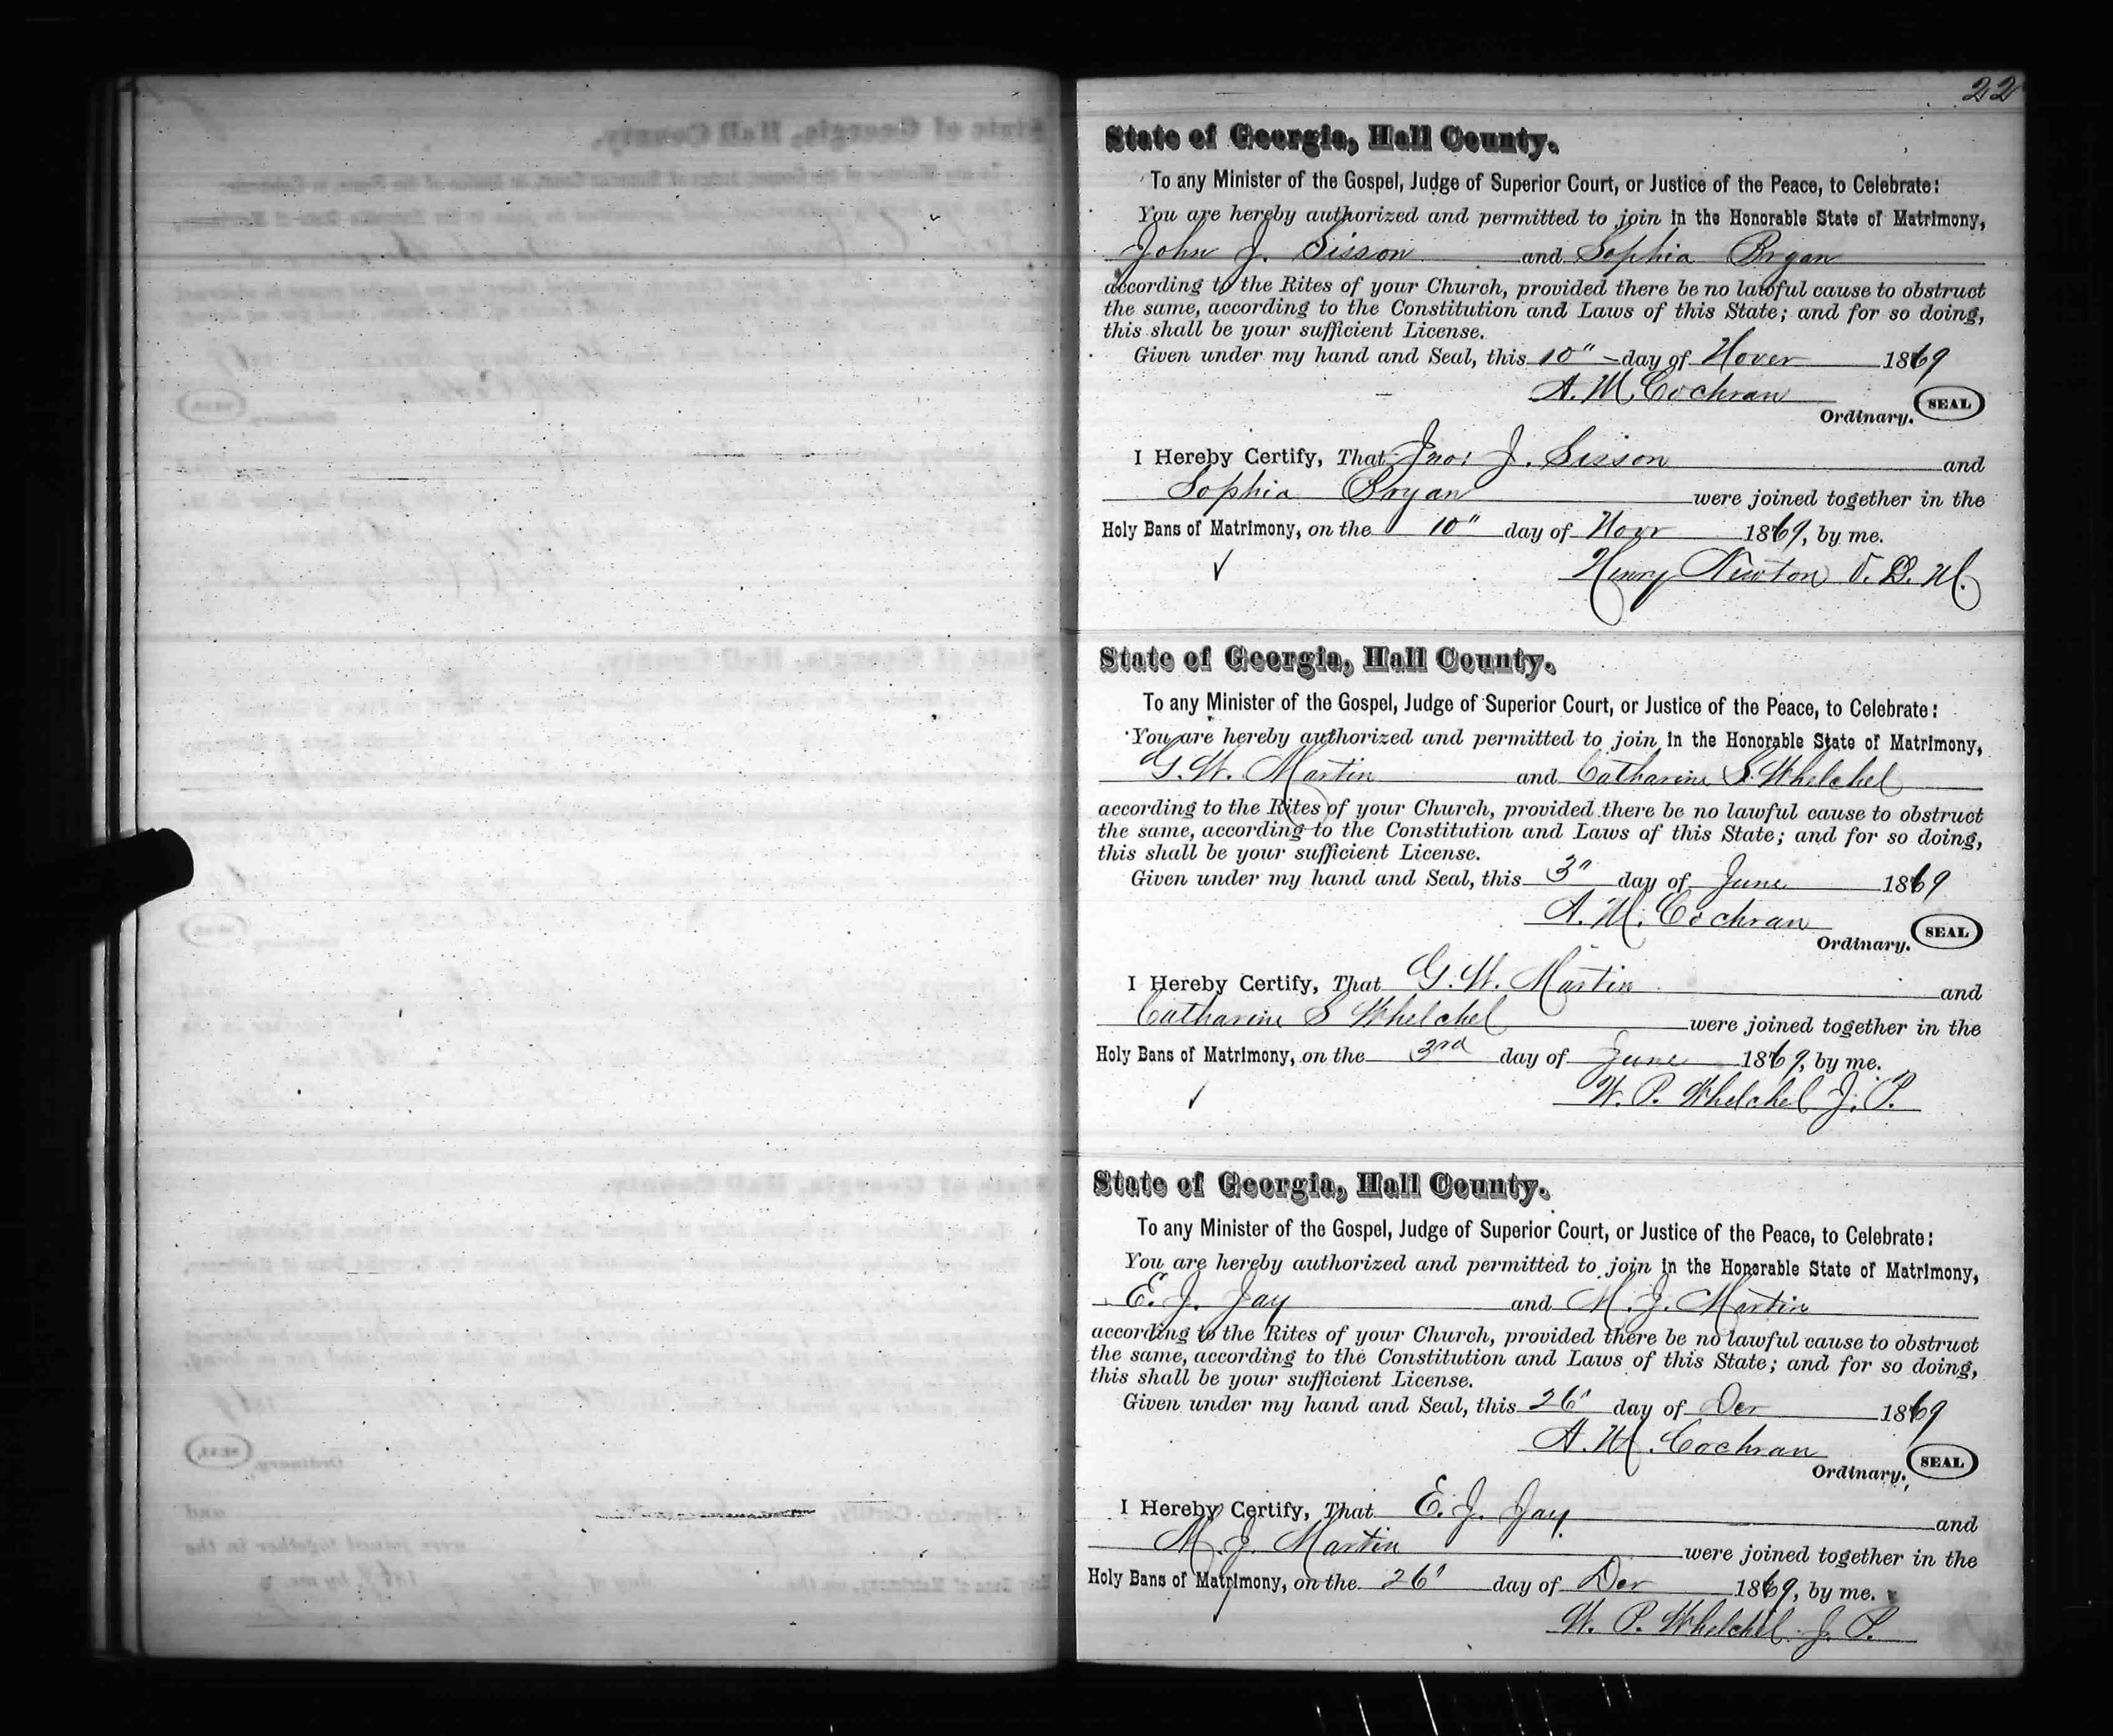 22
State of Georgia, Hall County.
To any Minister of the Gospel, Judge of Superior Court, or Justice of the Peace, to Celebrate:
You are hereby authorized and permitted to join in the Honorable State of Matrimony,
John J. Sisson and Sophia Bryan
according to the Rites of your Church, provided there be no lawful cause to obstruct
the same, according to the Constitution and Laws of this State; and for so doing,
this shall be your sufficient License.
Given under my hand and Seal, this 10" day of Nover 1869
A. M. Cochran
Ordinary. SEAL
I Hereby Certify, That Jno: J. Sisson and
Sophia Bryan were joined together in the
Holy Bans of Matrimony, on the 10" day of Novr 1869, by me.
Henry Newton V. D. M.
State of Georgia, Hall County.
To any Minister of the Gospel, Judge of Superior Court, or Justice of the Peace, to Celebrate:
You are hereby authorized and permitted to join in the Honorable State of Matrimony,
G. W. Martin and Catharine S. Whelchel
according to the Rites of your Church, provided there be no lawful cause to obstruct
the same, according to the Constitution and Laws of this State; and for so doing,
this shall be your sufficient License.
Given under my hand and Seal, this 3" day of June 1869
A. M. Cochran
Ordinary. SEAL
I Hereby Certify, That G. W. Martin and
Catharine S Whelchel were joined together in the
Holy Bans of Matrimony, on the 3rd day of June 1869, by me.
W. P. Whelchel J. P.
State of Georgia, Hall County.
To any Minister of the Gospel, Judge of Superior Court, or Justice of the Peace, to Celebrate:
You are hereby authorized and permitted to join in the Honorable State of Matrimony,
E. J. Jay and M. J. Martin
according to the Rites of your Church, provided there be no lawful cause to obstruct
the same, according to the Constitution and Laws of this State; and for so doing,
this shall be your sufficient License.
Given under my hand and Seal, this 26' day of Der 1869
A. M. Cochran
Ordinary. SEAL
I Hereby Certify, That E. J. Jay. and
M. J. Martin were joined together in the
Holy Bans of Matrimony, on the 26' day of Der 1869, by me.
W. P. Whelchel J. P.